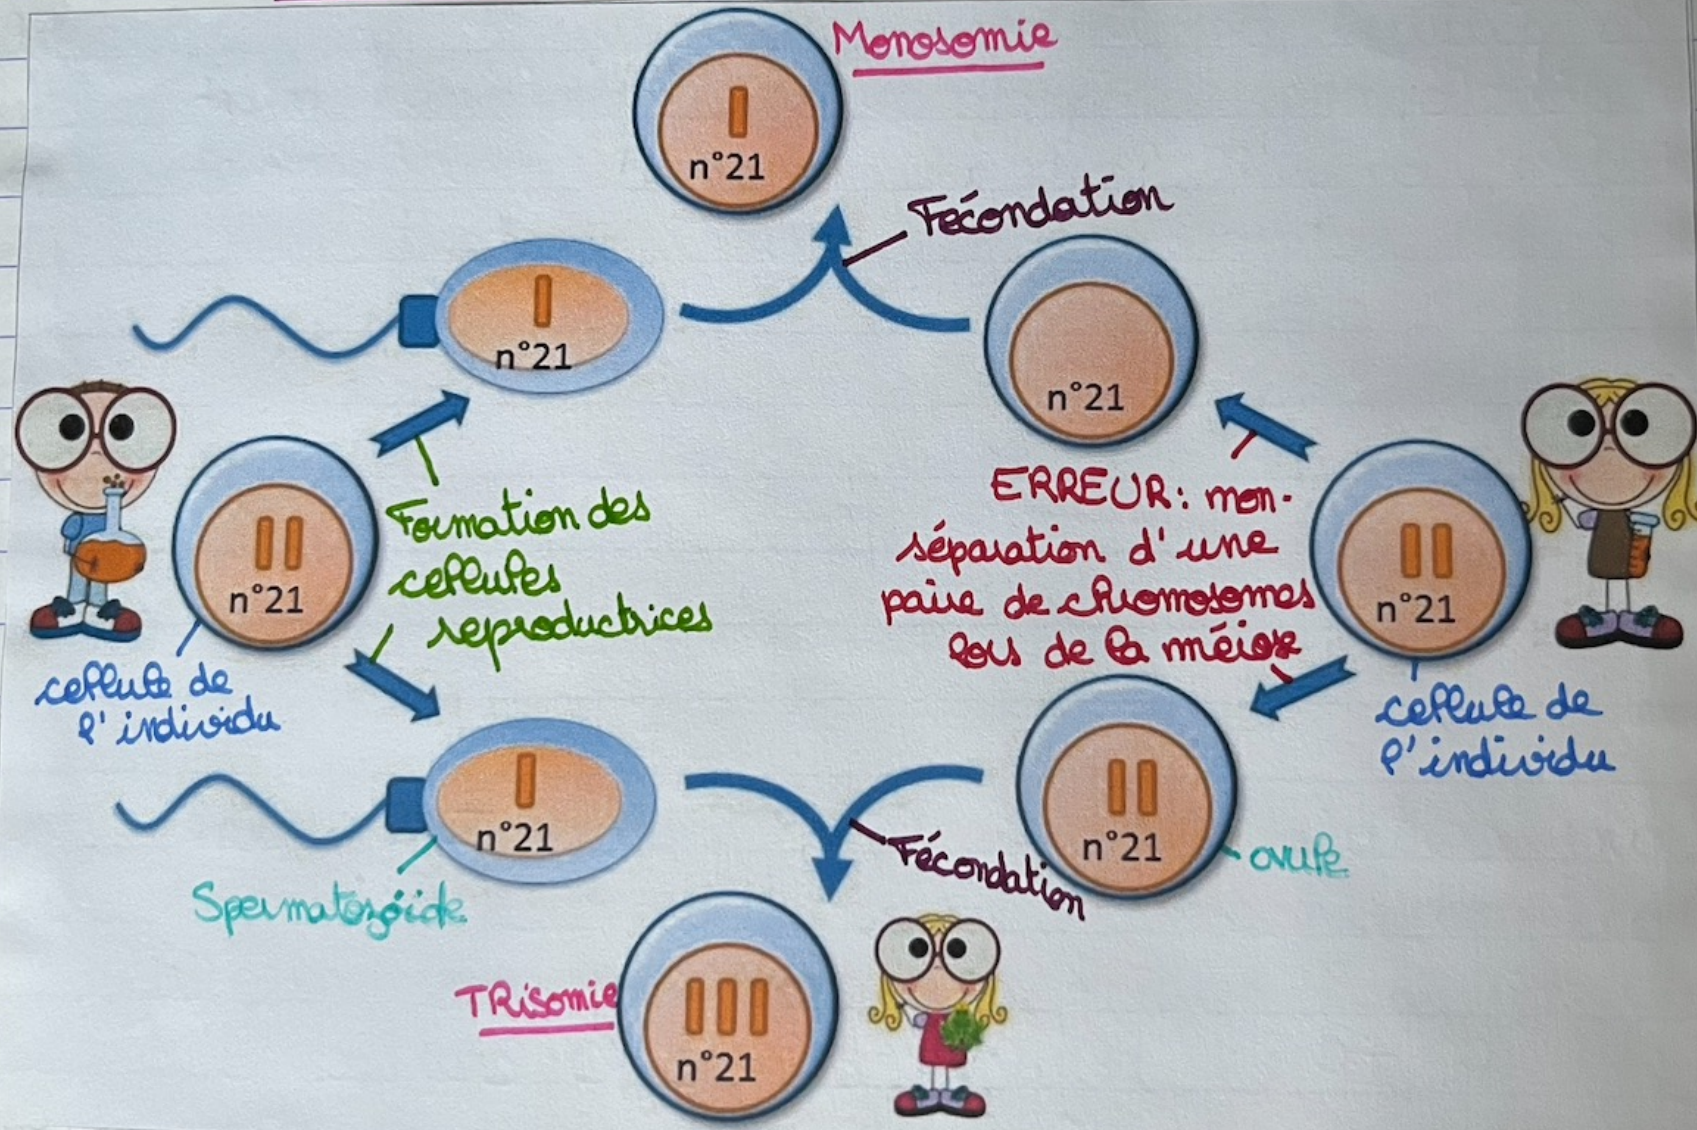 Monosomie
n°21
Fécondation
n°21
n°21
Formation des
cellules
reproductrices
ERREUR : non-
séparation d'une
paire de chromosomes
lors de la méiose
n°21
n°21
cellule de
l'individu
cellule de
l'individu
n°21
n°21
Fécondation
ovule
Spermatozoïde
TRisomie
n°21